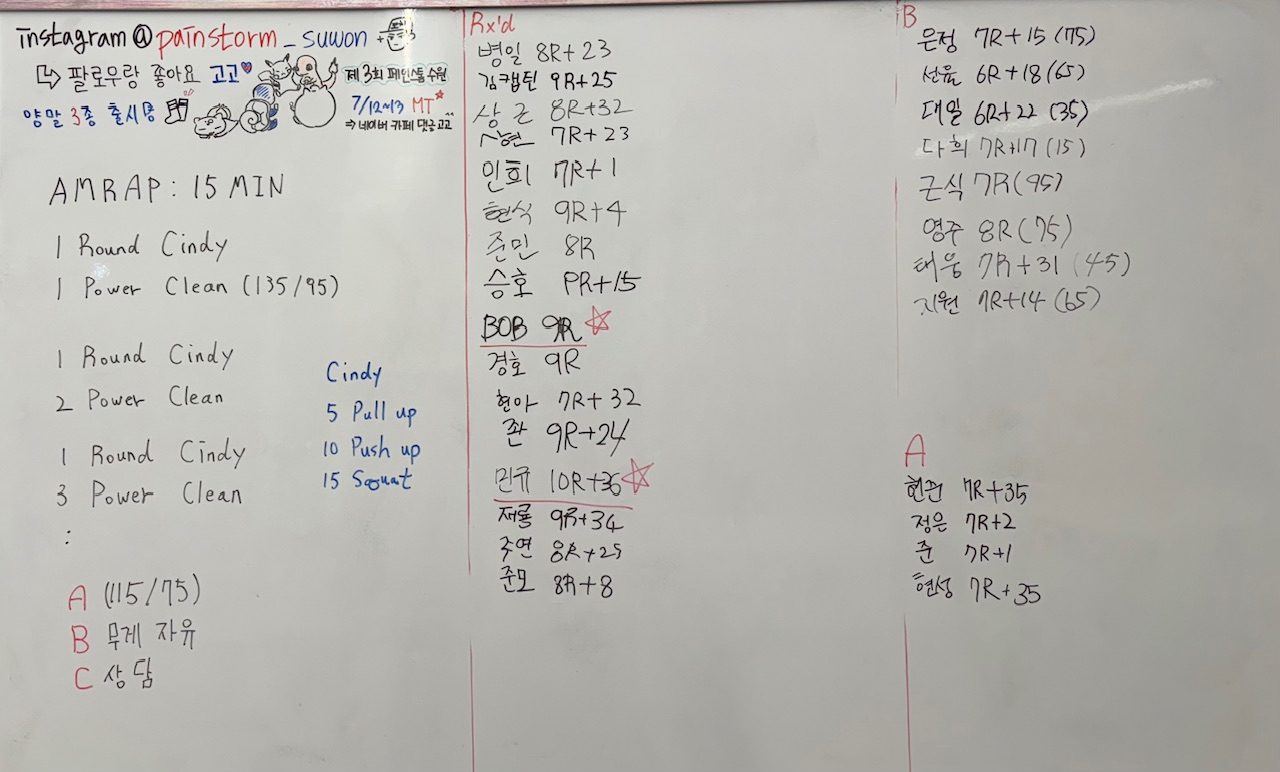 instagram@painstorm_suwon
팔로우랑 좋아요 고고
양말 3종 출시
제 3회 페인스톰 수원
7/12~13 MT
⇒ 네이버 카페 댓글 고고
AMRAP : 15 MIN
1 Round Cindy
1 Power Clean (135/95)
1 Round Cindy
2 Power Clean
1 Round Cindy
3 Power Clean
:
Cindy
5 Pull up
10 Push up
15 Squat
A (115/75)
B 무게 자유
C 상담
Rx'd
병일 8R+23
김캡틴 9R+25
상근 8R+32
시현 7R+23
인희 7R+1
현식 9R+4
준민 8R
승호 PR+15
BOB 9R
경호 9R
현아 7R+32
콴 9R+24
민규 10R+36
재룡 9R+34
주연 8R+29
준모 8R+8
B
은정 7R+15 (75)
선율 6R+18 (65)
대일 6R+22 (35)
다희 7R+17 (15)
근식 7R (95)
영주 8R (75)
태웅 7R+31 (45)
지원 7R+14 (65)
A
현준 7R+35
정은 7R+2
준 7R+1
현성 7R+35